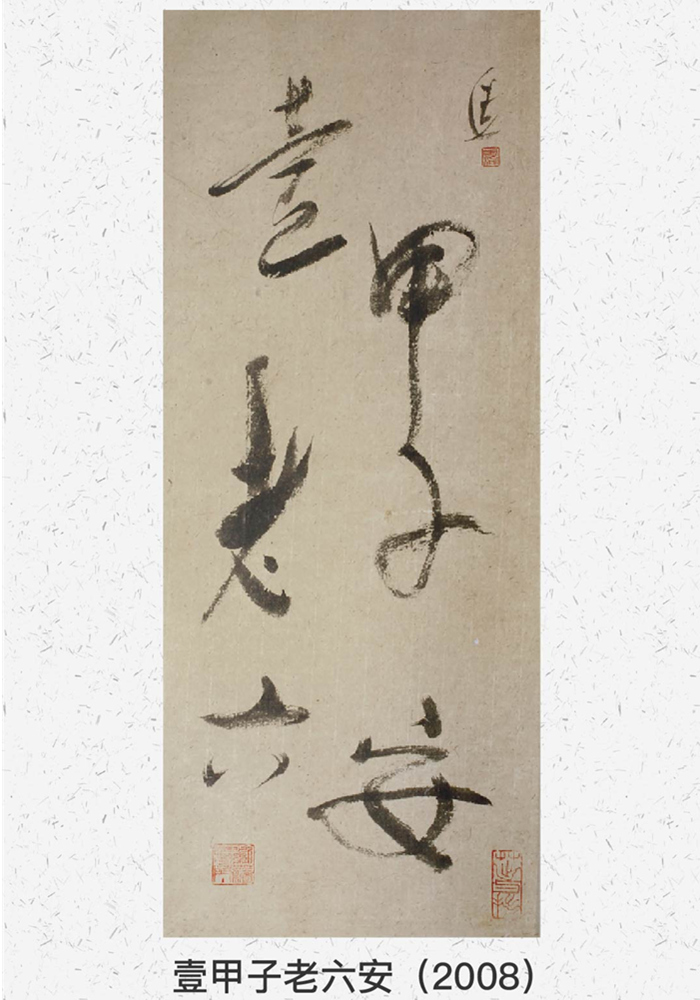 壹甲子
老六安
壹甲子老六安（2008）